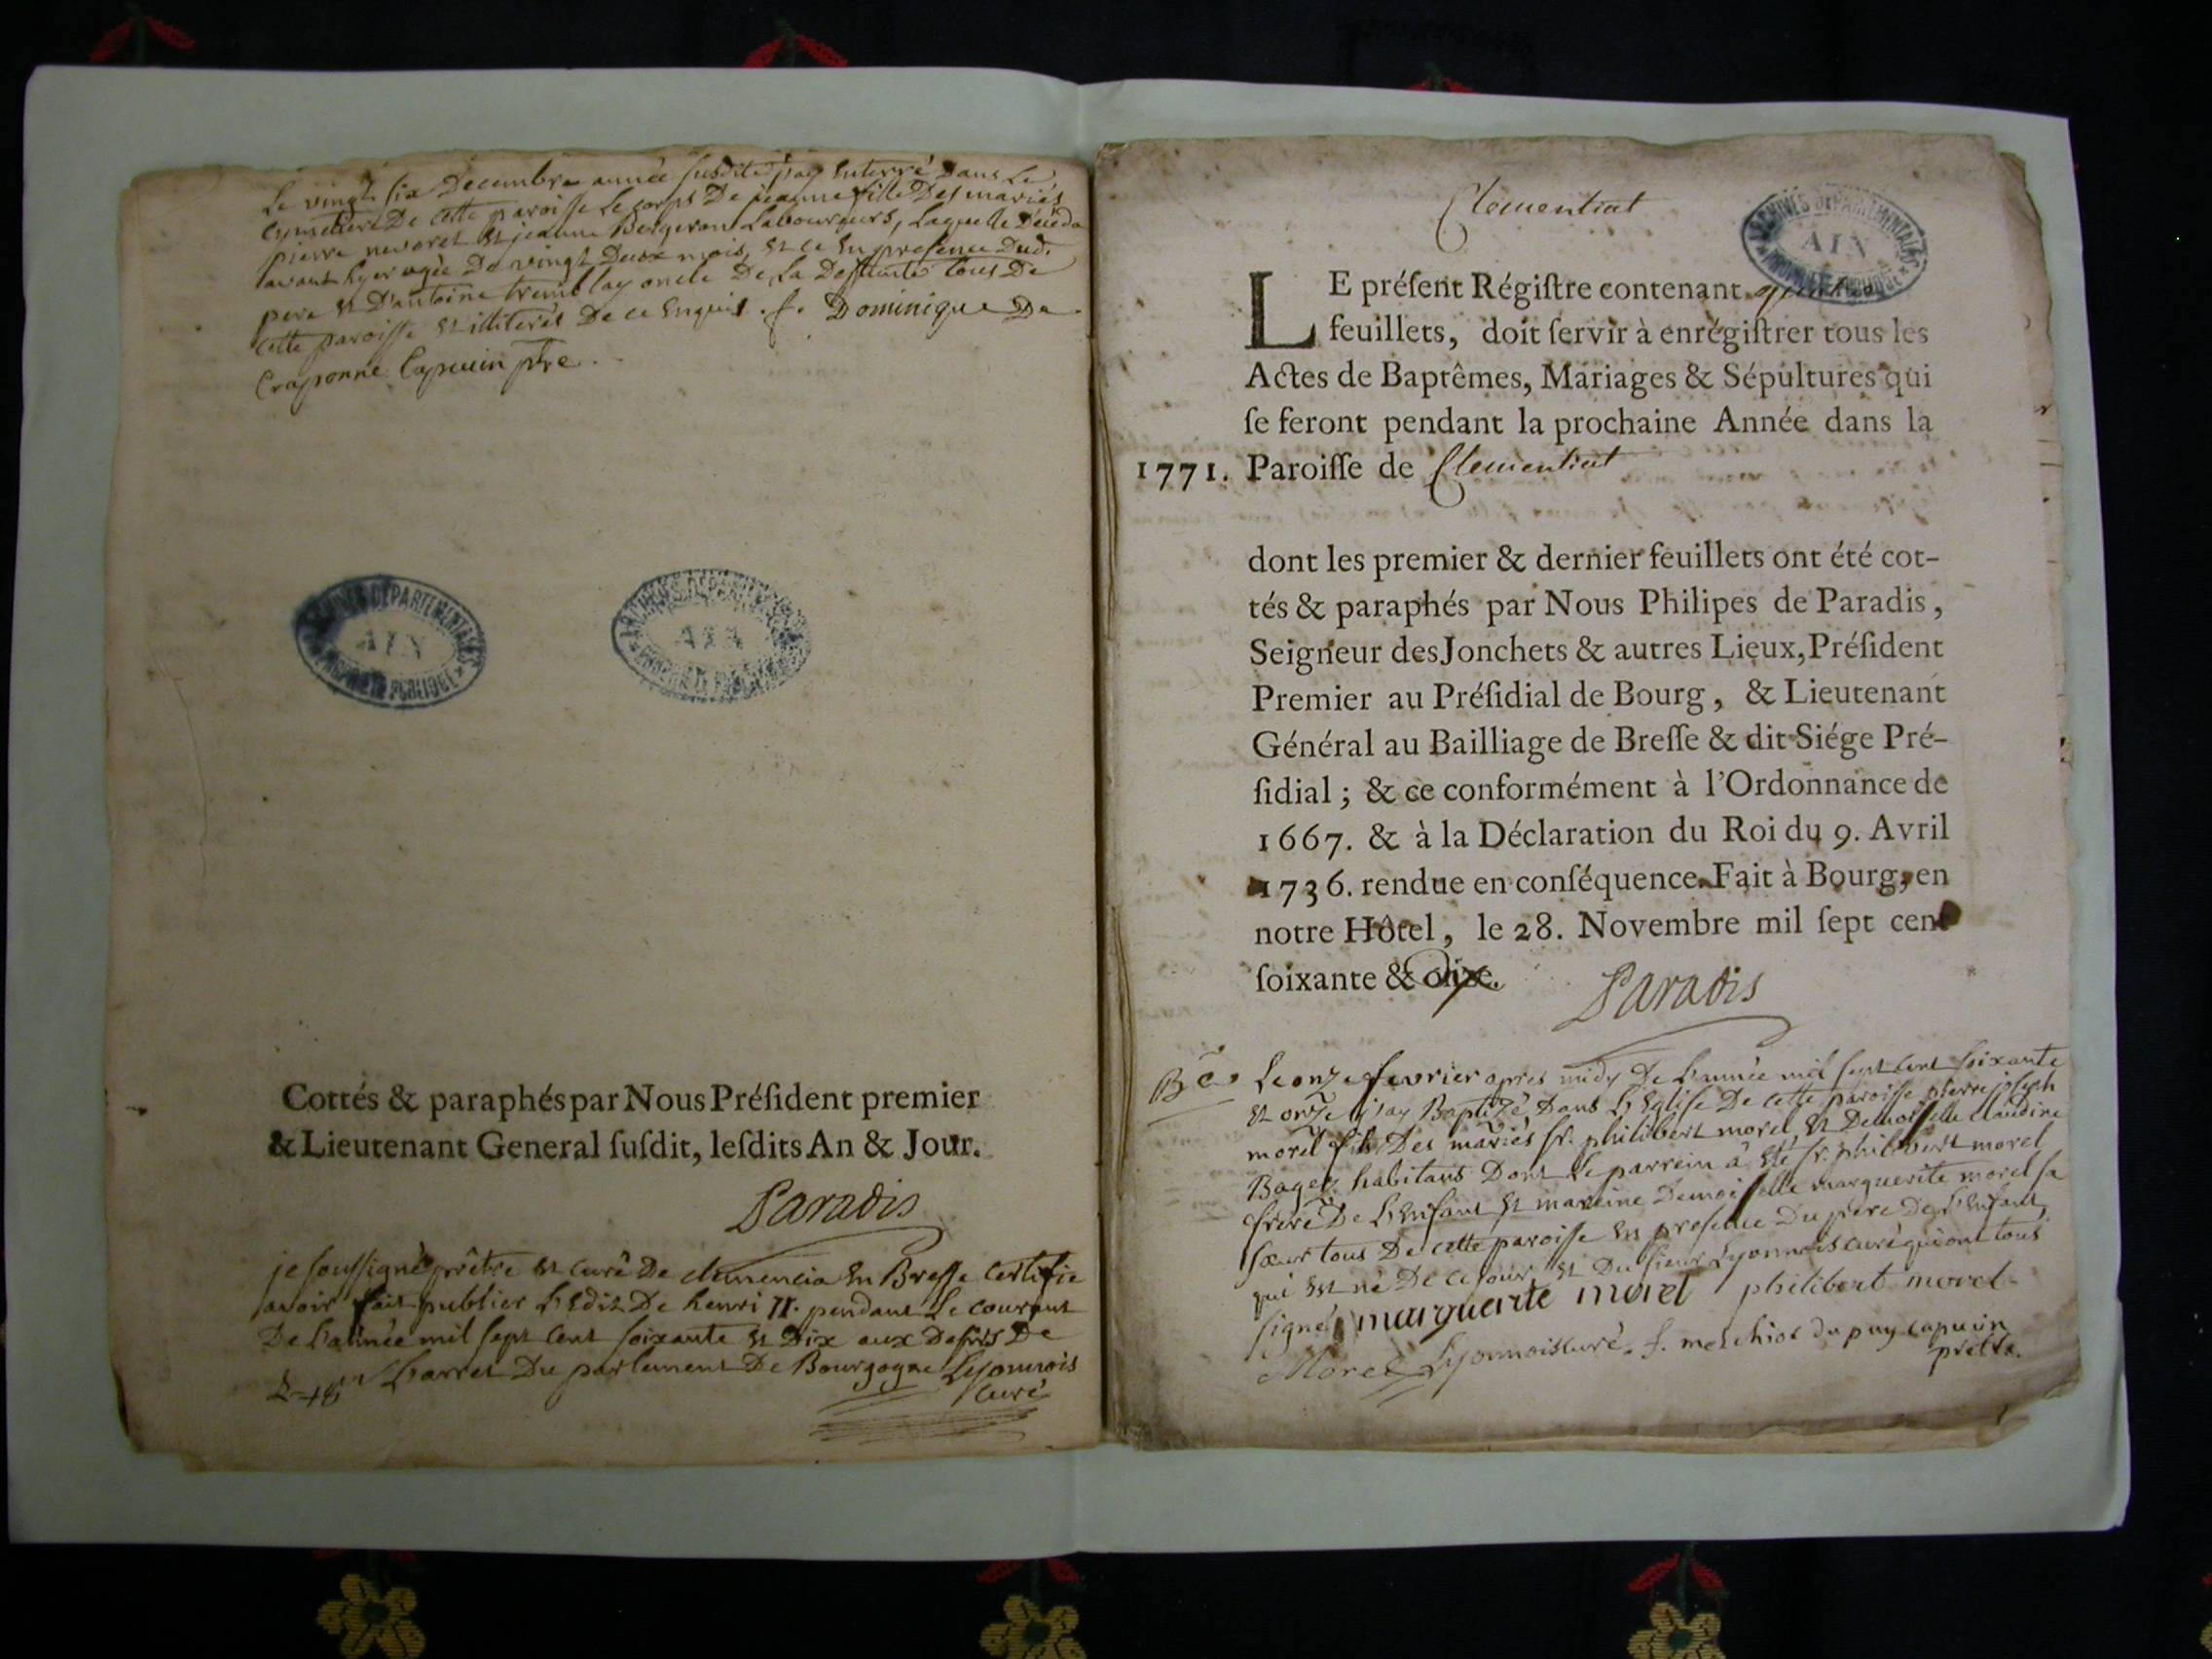 Le vingt six Decembre année susdite j'ay Enterré Dans Le
Cymetiere De cette paroisse Le corps De jeanne fille Des mariés
pierre nevoret Et jeanne Bergeron Laboureurs, Laquelle Décéda
avant hyer agée De vingt Deux mois, Et ce En presence Dud.
pere Et D'antoine tremblay oncle De La Deffunte tous De
cette paroisse Et illiterés De ce Enquis. f. Dominique De
Craponne Capucin ptre.
ARCHIVES DEPARTEMENTALES
AIN
PROPRIETE PUBLIQUE
ARCHIVES DEPARTEMENTALES
AIN
PROPRIETE PUBLIQUE
Cottés & paraphés par Nous Président premier
& Lieutenant General ſuſdit, leſdits An & Jour.
Paradis
je soussigné prêtre Et curé De clemencia En Bresse Certifie
avoir fait publier L'Edit De henri II. pendant Le courant
De L'année mil sept cent soixante Et Dix aux Desirs De
L'arret Du parlement De Bourgogne Lyonnois
curé
Clementiat
ARCHIVES DEPARTEMENTALES
AIN
PROPRIETE PUBLIQUE
LE préſent Régiſtre contenant
feuillets, doit ſervir à enrégiſtrer tous les
Actes de Baptêmes, Mariages & Sépultures qui
ſe feront pendant la prochaine Année dans la
1771. Paroiſſe de Clementiat
dont les premier & dernier feuillets ont été cot-
tés & paraphés par Nous Philipes de Paradis,
Seigneur des Jonchets & autres Lieux, Préſident
Premier au Préſidial de Bourg, & Lieutenant
Général au Bailliage de Breſſe & dit Siége Pré-
ſidial ; & ce conformément à l'Ordonnance de
1667. & à la Déclaration du Roi du 9. Avril
1736. rendue en conſéquence. Fait à Bourg, en
notre Hôtel, le 28. Novembre mil ſept cent
ſoixante & dix.
Paradis
Le onze fevrier apres midy De L'année mil sept cent soixante
Et onze j'ay Baptizé Dans L'Eglise De cette paroisse pierre joseph
morel fils Des mariés sr. philibert morel Et Demoiselle claudine
Bagey habitants Dont Le parrein à Eté sr. philibert morel
frere De L'Enfant Et mareine Demoiselle marguerite morel sa
sœur tous De cette paroisse En presence Du pere De L'Enfant
qui Est né De ce jour, Et Du sieur Lyonnois curé qui ont tous
signé marguerite morel philibert morel
Morel Lyonnois curé. f. melchior du puy capucin
prêtre.